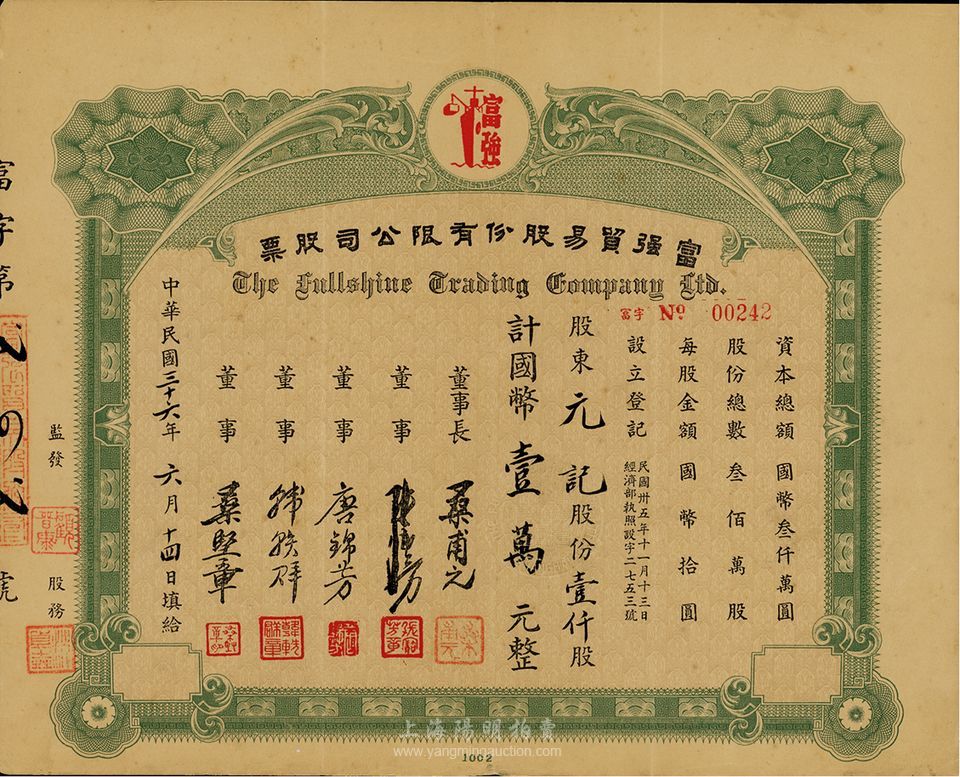 富強
富强貿易股份有限公司股票
The Fullshine Trading Company Ltd.
富字 № 00242
資本總額 國幣叁仟萬圓
股份總數 叁佰萬股
每股金額 國幣拾圓
設立登記 民國卅五年十一月十三日
經濟部執照設字二七五三號
股東 元記 股份壹仟股
計國幣 壹萬 元整
董事長 桑甫元
董事
董事 唐錦芳
董事 韓軼群
董事 桑堅章
中華民國三十六年 六月十四日填給
監發
股務
富字第
號
上海陽明拍賣
www.yangmingauction.com
1002